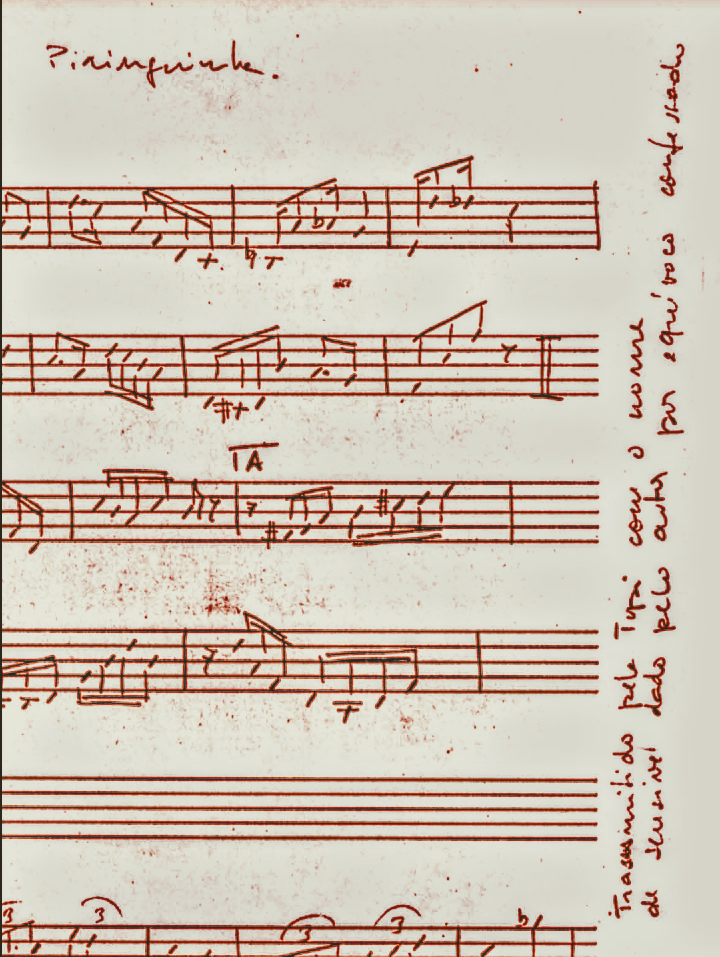 Pixinguinha.
A
3 3 3 3
Transmitido pela Tupi com o nome
de sensivel dado pelo autor por equívoco confessado